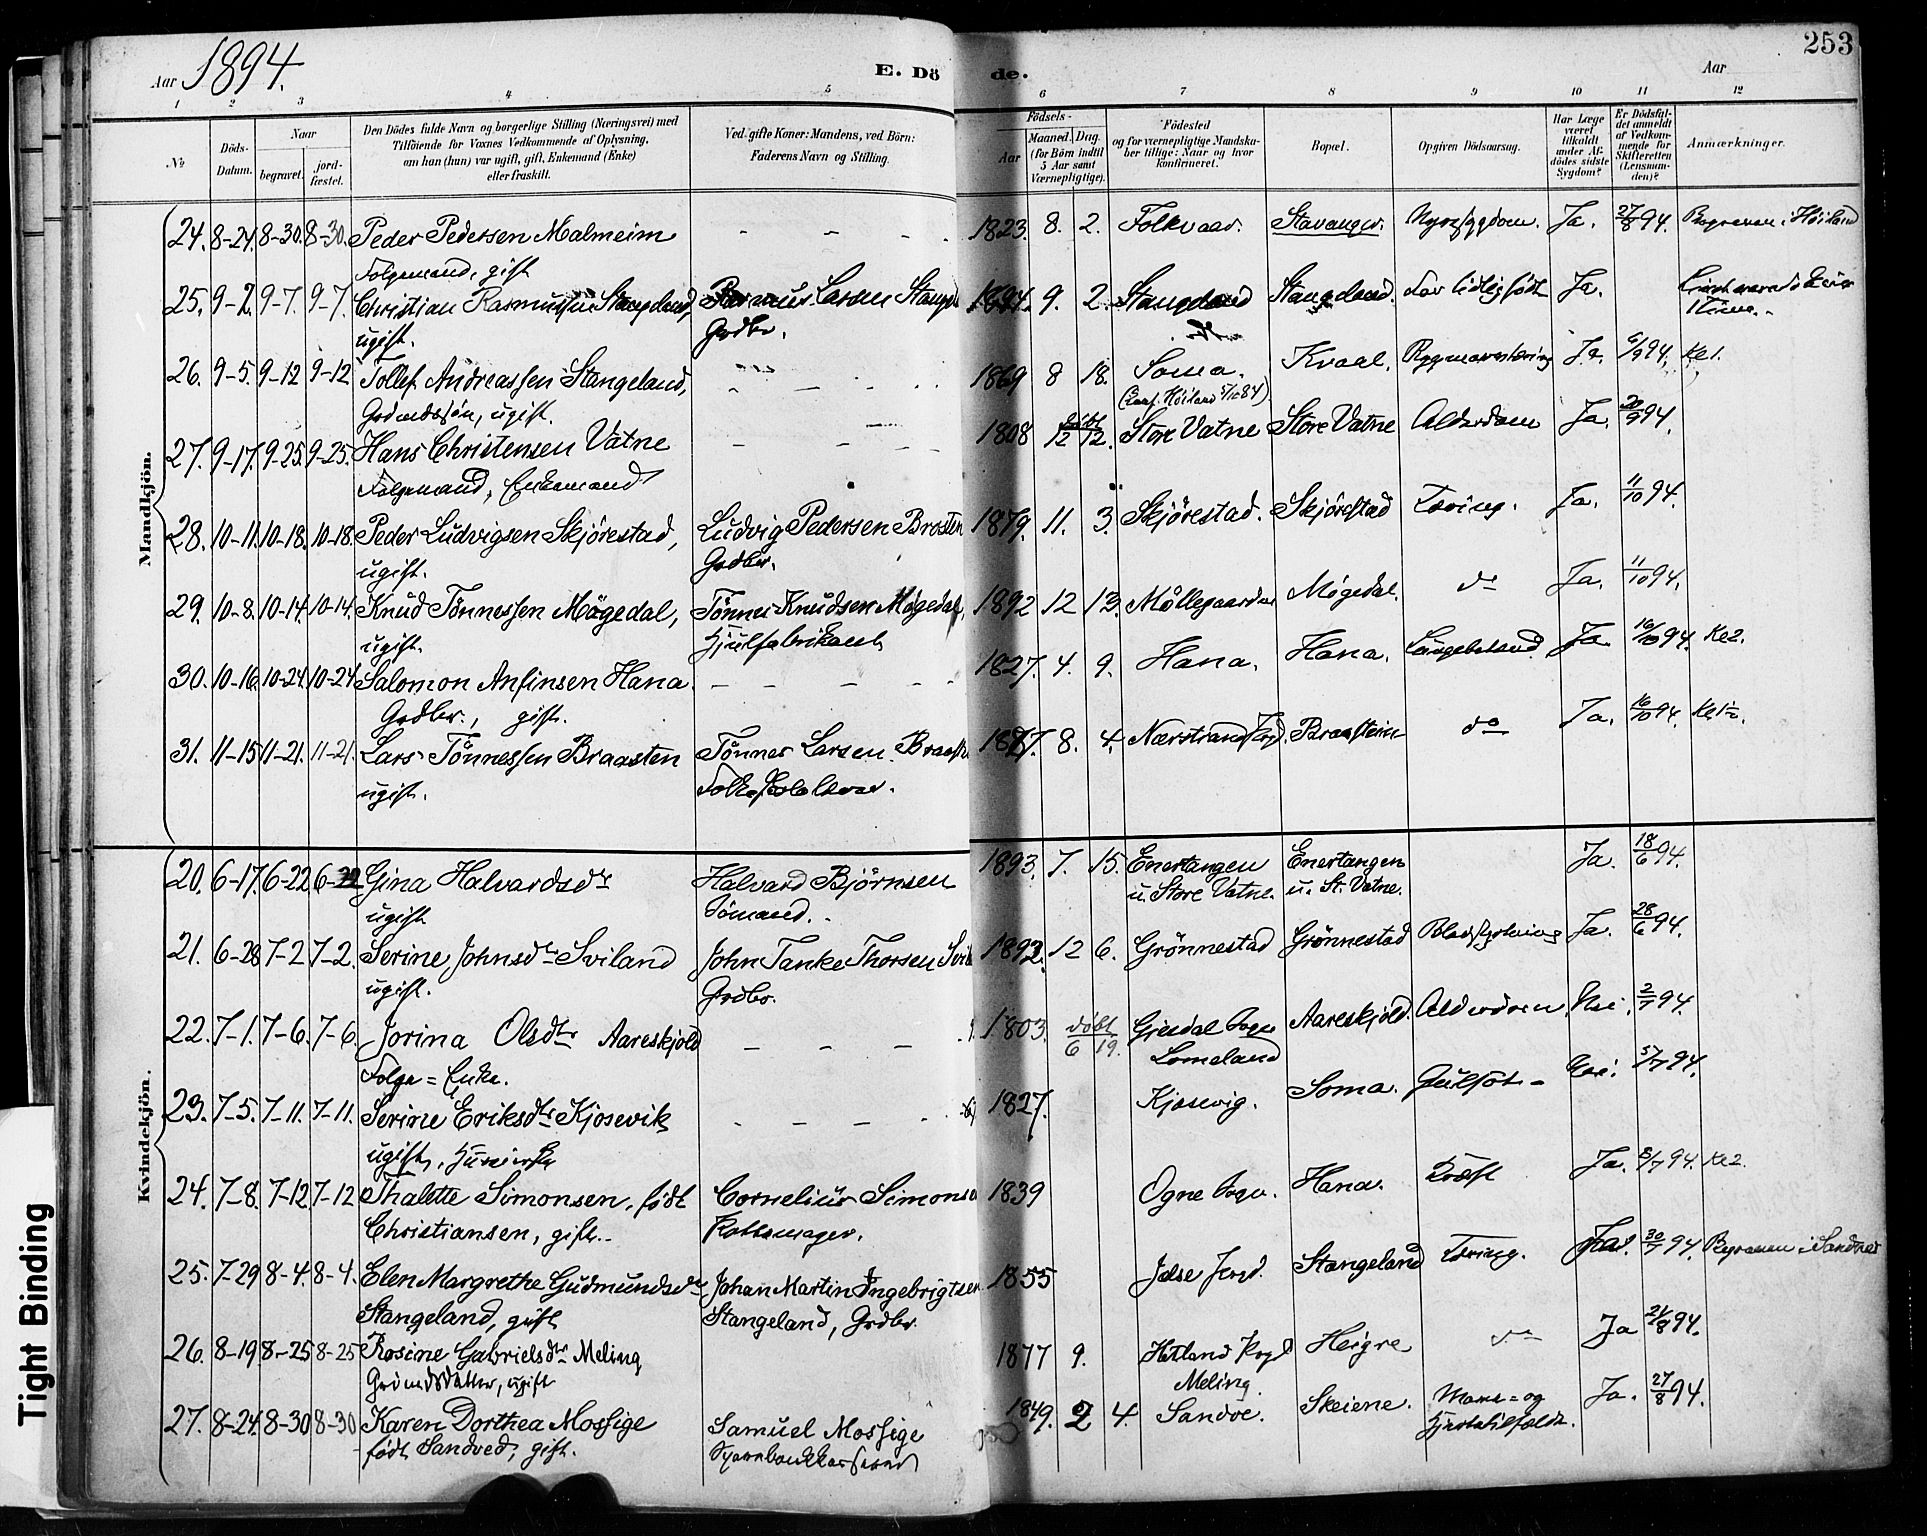 253
Aar 1894.
E. Döde.
Aar
1 2 3 4 5 6 7 8 9 10 11 12
No.
Döds-Datum.
Naar
begravet.
jord-fæstet.
Den Dödes fulde Navn og borgerlige Stilling (Næringsvei) med
Tilföiende for Voxnes Vedkommende af Oplysning,
om han (hun) var ugift, gift, Enkemand (Enke)
eller fraskilt.
Ved gifte Koner: Mandens, ved Börn:
Faderens Navn og Stilling.
Födsels-
Aar
Maaned. Dag.
(for Börn indtil
5 Aar samt
Værnepligtige).
Födested
og for værnepligtige Mandska-
ber tillige: Naar og hvor
konfirmeret.
Bopæl.
Opgiven Dödsaarsag.
Har Læge
været
tilkaldt
under Af-
dödes sidste
Sygdom?
Er Dödsfal-
det anmeldt
af Vedkom-
mende for
Skifteretten
(Lensman-
den)?
Anmærkninger.
Mandkjön.
24. 8-24. 8-30. 8-30. Peder Pedersen Malmeim - - - - 1823. 8. 2. Folkvaar. Stavanger. Nyresygdom. Ja. 27/8 94. i Höiland
Folgemand, gift
25. 9-2. 9-7. 9-7. Christian Rasmussen Stangeland, Rasmus Larsen 1894. 9. 2. Stangeland Stangeland. For tidlig født Ja.
ugift. Grdbr.
26. 9-5. 9-12 9-12 Tollef Andreassen Stangeland, 1869 8 18. Soma. Kvaal. Ja. 6/9 94. Kl 1.
Grdmdssön, ugift. (Conf. Höiland 5/10 84)
27. 9-17. 9-25. 9-25. Hans Christensen Vatne - - - 1808 döbt 12/12. Store Vatne Store Vatne Alderdom Ja. 20/9 94.
Folgemand, Enkemand
28. 10-11. 10-18. 10-18. Peder Ludvigsen Skjörestad, Ludvig Pedersen 1879. 11. 3. Skjörestad. Skjörestad Tæring. Ja. 11/10 94.
ugift. Grdbr.
29. 10-8. 10-14. 10-14. Knud Tönnessen Mögedal, Tönnes Knudsen Mögedal, 1892 12 13. Möllegaarden Mögedal. do Ja. 11/10 94.
ugift. Hjulfabrikant
30. 10-16. 10-24. 10-24 Salomon Anfinsen Hana. - - - - 1827. 4. 9. Hana. Hana. Ja 16/10 94. Kl 2.
Grdbr., gift.
31. 11-15 11-21. 11-21. Lars Tönnessen Braasten Tönnes Larsen 1887. 8. 4. Nærstrand Braastein do Ja. 94.
ugift. Folkeskolelærer.
Kvindekjön.
20. 6-17. 6-22 6-22 Gina Halvardsdr Halvard Björnsen 1893. 7. 15. Enertangen Enertangen Ja. 18/6 94.
ugift Sömand. u. Store Vatne. u. St. Vatne.
21. 6-28 7-2 7-2. Serine Johnsdtr Sviland John Tanke Thorsen 1892. 12 6. Grönnestad Grönnestad Ja. 28/6 94.
ugift. Grdbr.
22. 7-1. 7-6. 7-6 Jorina Olsdtr Aareskjold - - - 1803. döbt 6/19. Gjesdal Sogn Aareskjold. Alderdom Nei. 2/7 94.
Folge=Enke. Lomeland
23. 7-5. 7-11. 7-11. Serine Eriksdtr Kjosevik - - - 1827. Kjosevig. Soma. Gulsot Nei. 5/7 94.
ugift,
24. 7-8. 7-12 7-12 Thalette Simonsen, födt Cornelius Simonsen 1839 Ogne Sogn. Hana. Kræft Ja. 94. Kl 2.
Christiansen, gift. Pottemager.
25. 7-29 8-4. 8-4. Elen Margrethe Gudmundsdtr Johan Martin Ingebrigtsen 1855 Jelse Prgd. Stangeland Tæring. Ja. 30/7 94. i Sandnes
Stangeland, gift Stangeland, Grdbr.
26. 8-19 8-25 8-25 Rosine Gabrielsdtr Meling 1877 9. Hetland Prgd Heigre do Ja 21/8 94.
Grdmdsdatter, ugift Meling.
27. 8-24. 8-30 8-30 Karen Dorthea Mossige Samuel Mossige 1849. 2 4. Sandve. Skeiene. Mave- og Ja. 27/8 94.
född Sandved, gift. Sparebankkasserer Hjertetilfælde.
Tight Binding